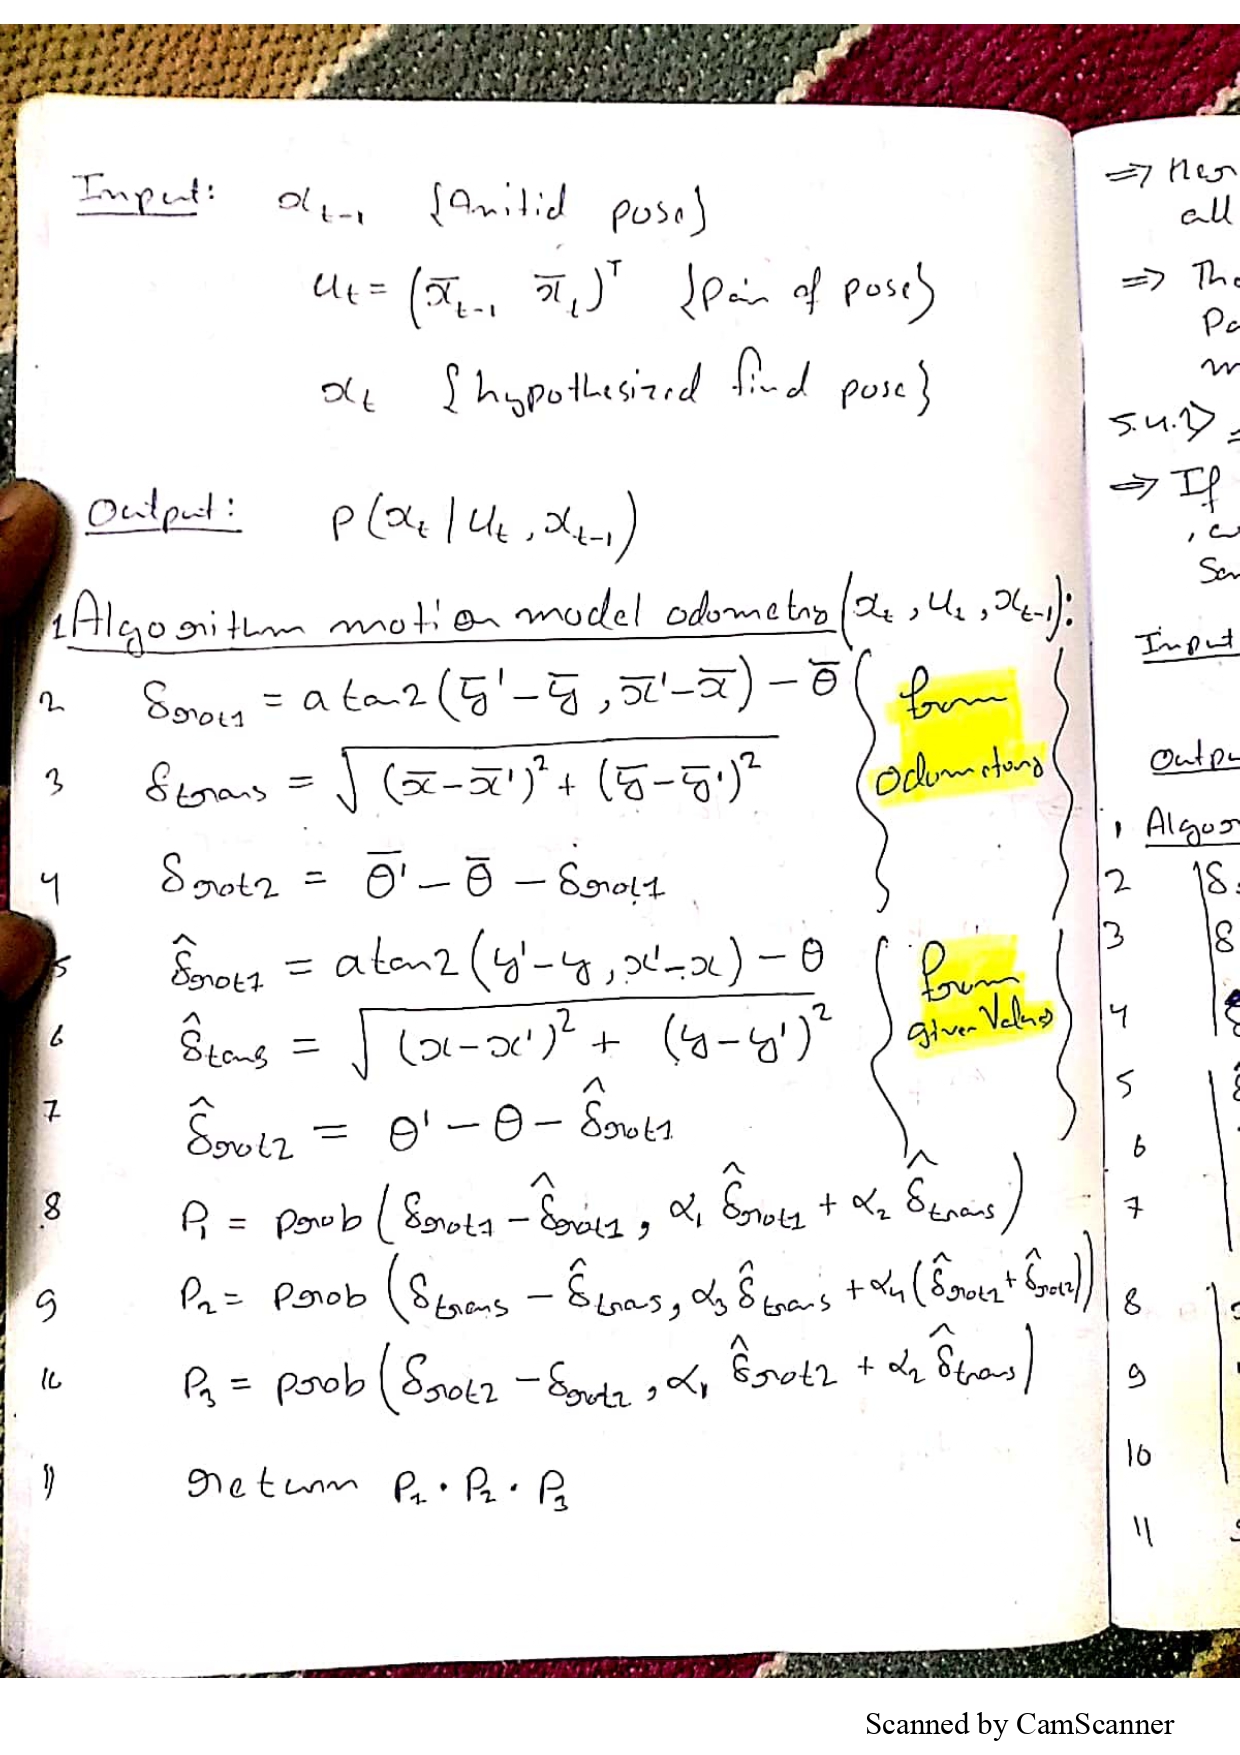 Input: x_{t-1} {Initial pose}
u_t = (x̄_{t-1} x̄_t)^T {Pair of pose}
x_t {hypothesized final pose}
Output: P(x_t | u_t, x_{t-1})
1 Algorithm motion model odometry (x_t, u_t, x_{t-1}):
2 δ_rot1 = atan2(ȳ' - ȳ, x̄' - x̄) - θ̄
3 δ_trans = √((x̄ - x̄')² + (ȳ - ȳ')²)
from
odometry
4 δ_rot2 = θ̄' - θ̄ - δ_rot1
5 δ̂_rot1 = atan2(y' - y, x' - x) - θ
6 δ̂_tans = √((x - x')² + (y - y')²)
from
given Values
7 δ̂_rot2 = θ' - θ - δ̂_rot1
8 P_1 = prob(δ_rot1 - δ̂_rot1, α_1 δ̂_rot1 + α_2 δ̂_trans)
9 P_2 = prob(δ_trans - δ̂_tras, α_3 δ̂_trans + α_4(δ̂_rot1 + δ̂_rot2))
10 P_3 = prob(δ_rot2 - δ_rot2, α_1 δ̂_rot2 + α_2 δ̂_trans)
11 return P_1 · P_2 · P_3
⇒
all
⇒
5.4.2)
⇒ If
Input
1
2 δ
3 δ
4
5
6
7
8
9
10
11
Scanned by CamScanner